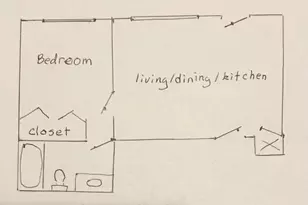 Bedroom
living/dining/kitchen
closet